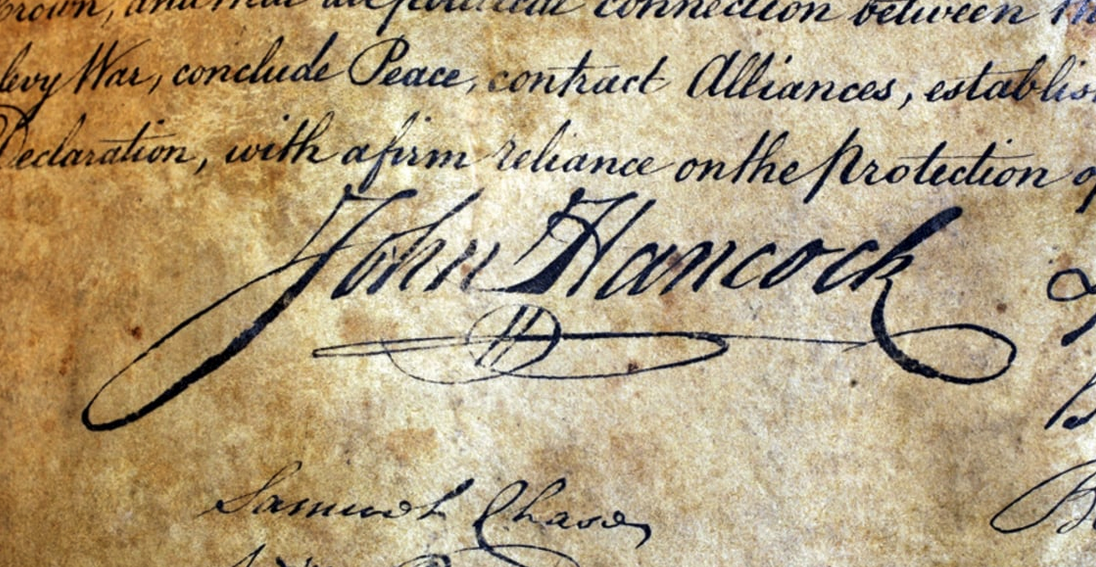 connection between
levy War, conclude Peace, contract Alliances, establis
Declaration, with a firm reliance on the Protection
John Hancock
Samuel Chase